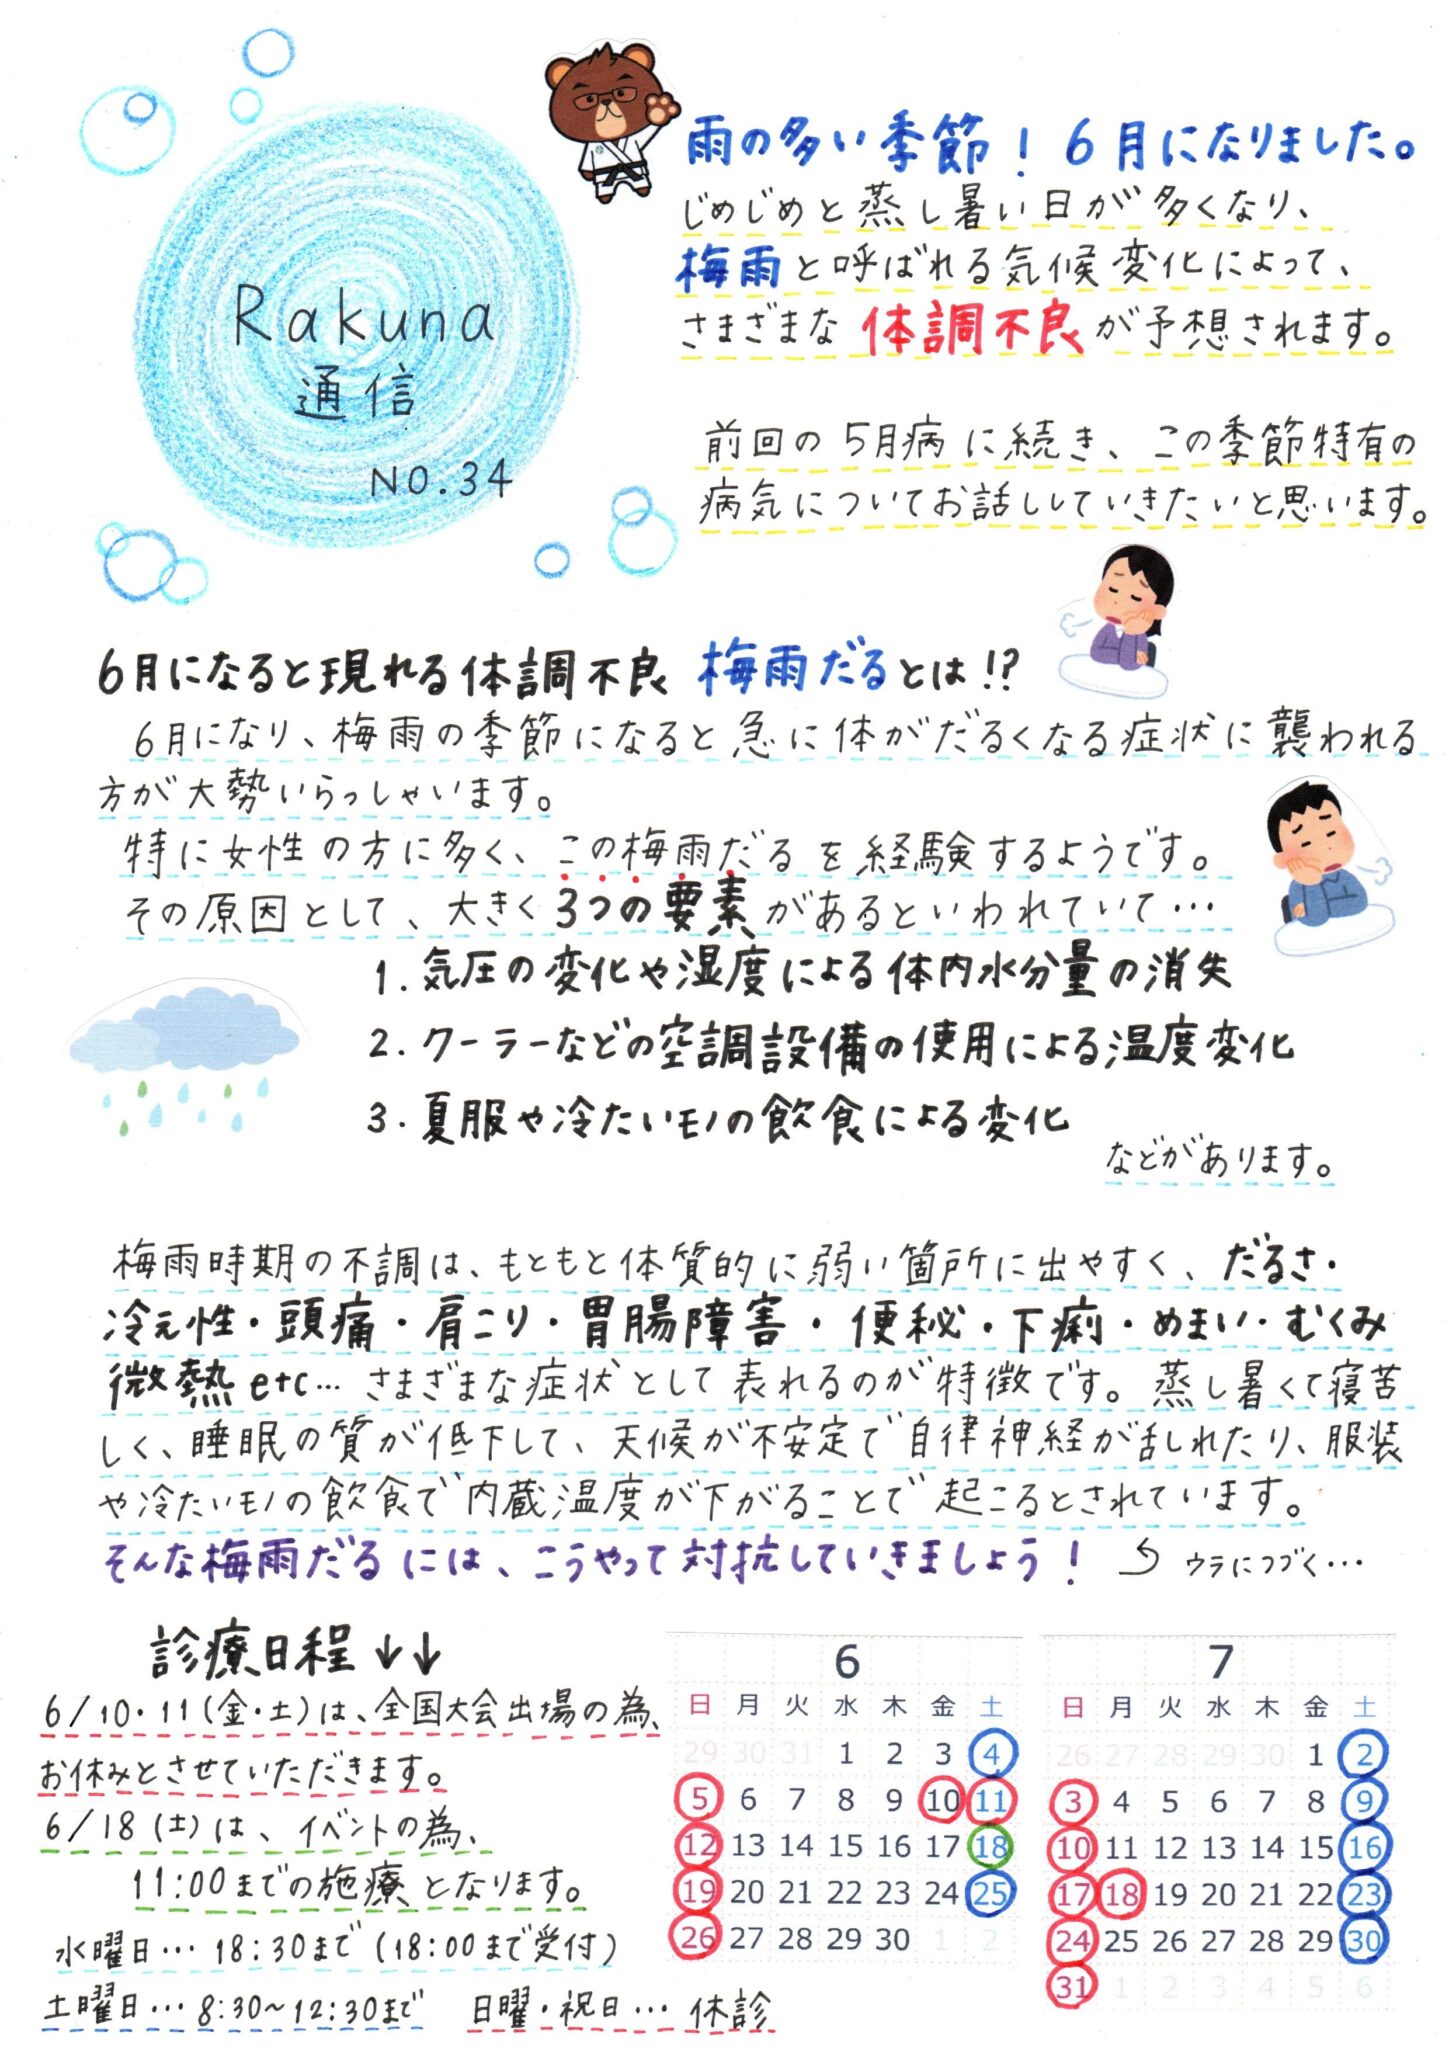 Rakuna
通信
NO.34
雨の多い季節！6月になりました。
じめじめと蒸し暑い日が多くなり、
梅雨と呼ばれる気候変化によって、
さまざまな体調不良が予想されます。
前回の5月病に続き、この季節特有の
病気についてお話ししていきたいと思います。
6月になると現れる体調不良 梅雨だるとは!?
6月になり、梅雨の季節になると急に体がだるくなる症状に襲われる
方が大勢いらっしゃいます。
特に女性の方に多く、この梅雨だるを経験するようです。
その原因として、大きく3つの要素があるといわれていて…
1. 気圧の変化や湿度による体内水分量の消失
2. クーラーなどの空調設備の使用による温度変化
3. 夏服や冷たいモノの飲食による変化
などがあります。
梅雨時期の不調は、もともと体質的に弱い箇所に出やすく、だるさ・
冷え性・頭痛・肩こり・胃腸障害・便秘・下痢・めまい・むくみ
微熱etc…さまざまな症状として表れるのが特徴です。蒸し暑くて寝苦
しく、睡眠の質が低下して、天候が不安定で自律神経が乱れたり、服装
や冷たいモノの飲食で内蔵温度が下がることで起こるとされています。
そんな梅雨だるには、こうやって対抗していきましょう！ ウラにつづく…
診療日程↓↓
6/10・11(金・土)は、全国大会出場の為、
お休みとさせていただきます。
6/18(土)は、イベントの為、
11:00までの施療となります。
水曜日…18:30まで(18:00まで受付)
土曜日…8:30~12:30まで 日曜・祝日…休診
6
日 月 火 水 木 金 土
29 30 31 1 2 3 4
5 6 7 8 9 10 11
12 13 14 15 16 17 18
19 20 21 22 23 24 25
26 27 28 29 30 1 2
7
日 月 火 水 木 金 土
26 27 28 29 30 1 2
3 4 5 6 7 8 9
10 11 12 13 14 15 16
17 18 19 20 21 22 23
24 25 26 27 28 29 30
31 1 2 3 4 5 6